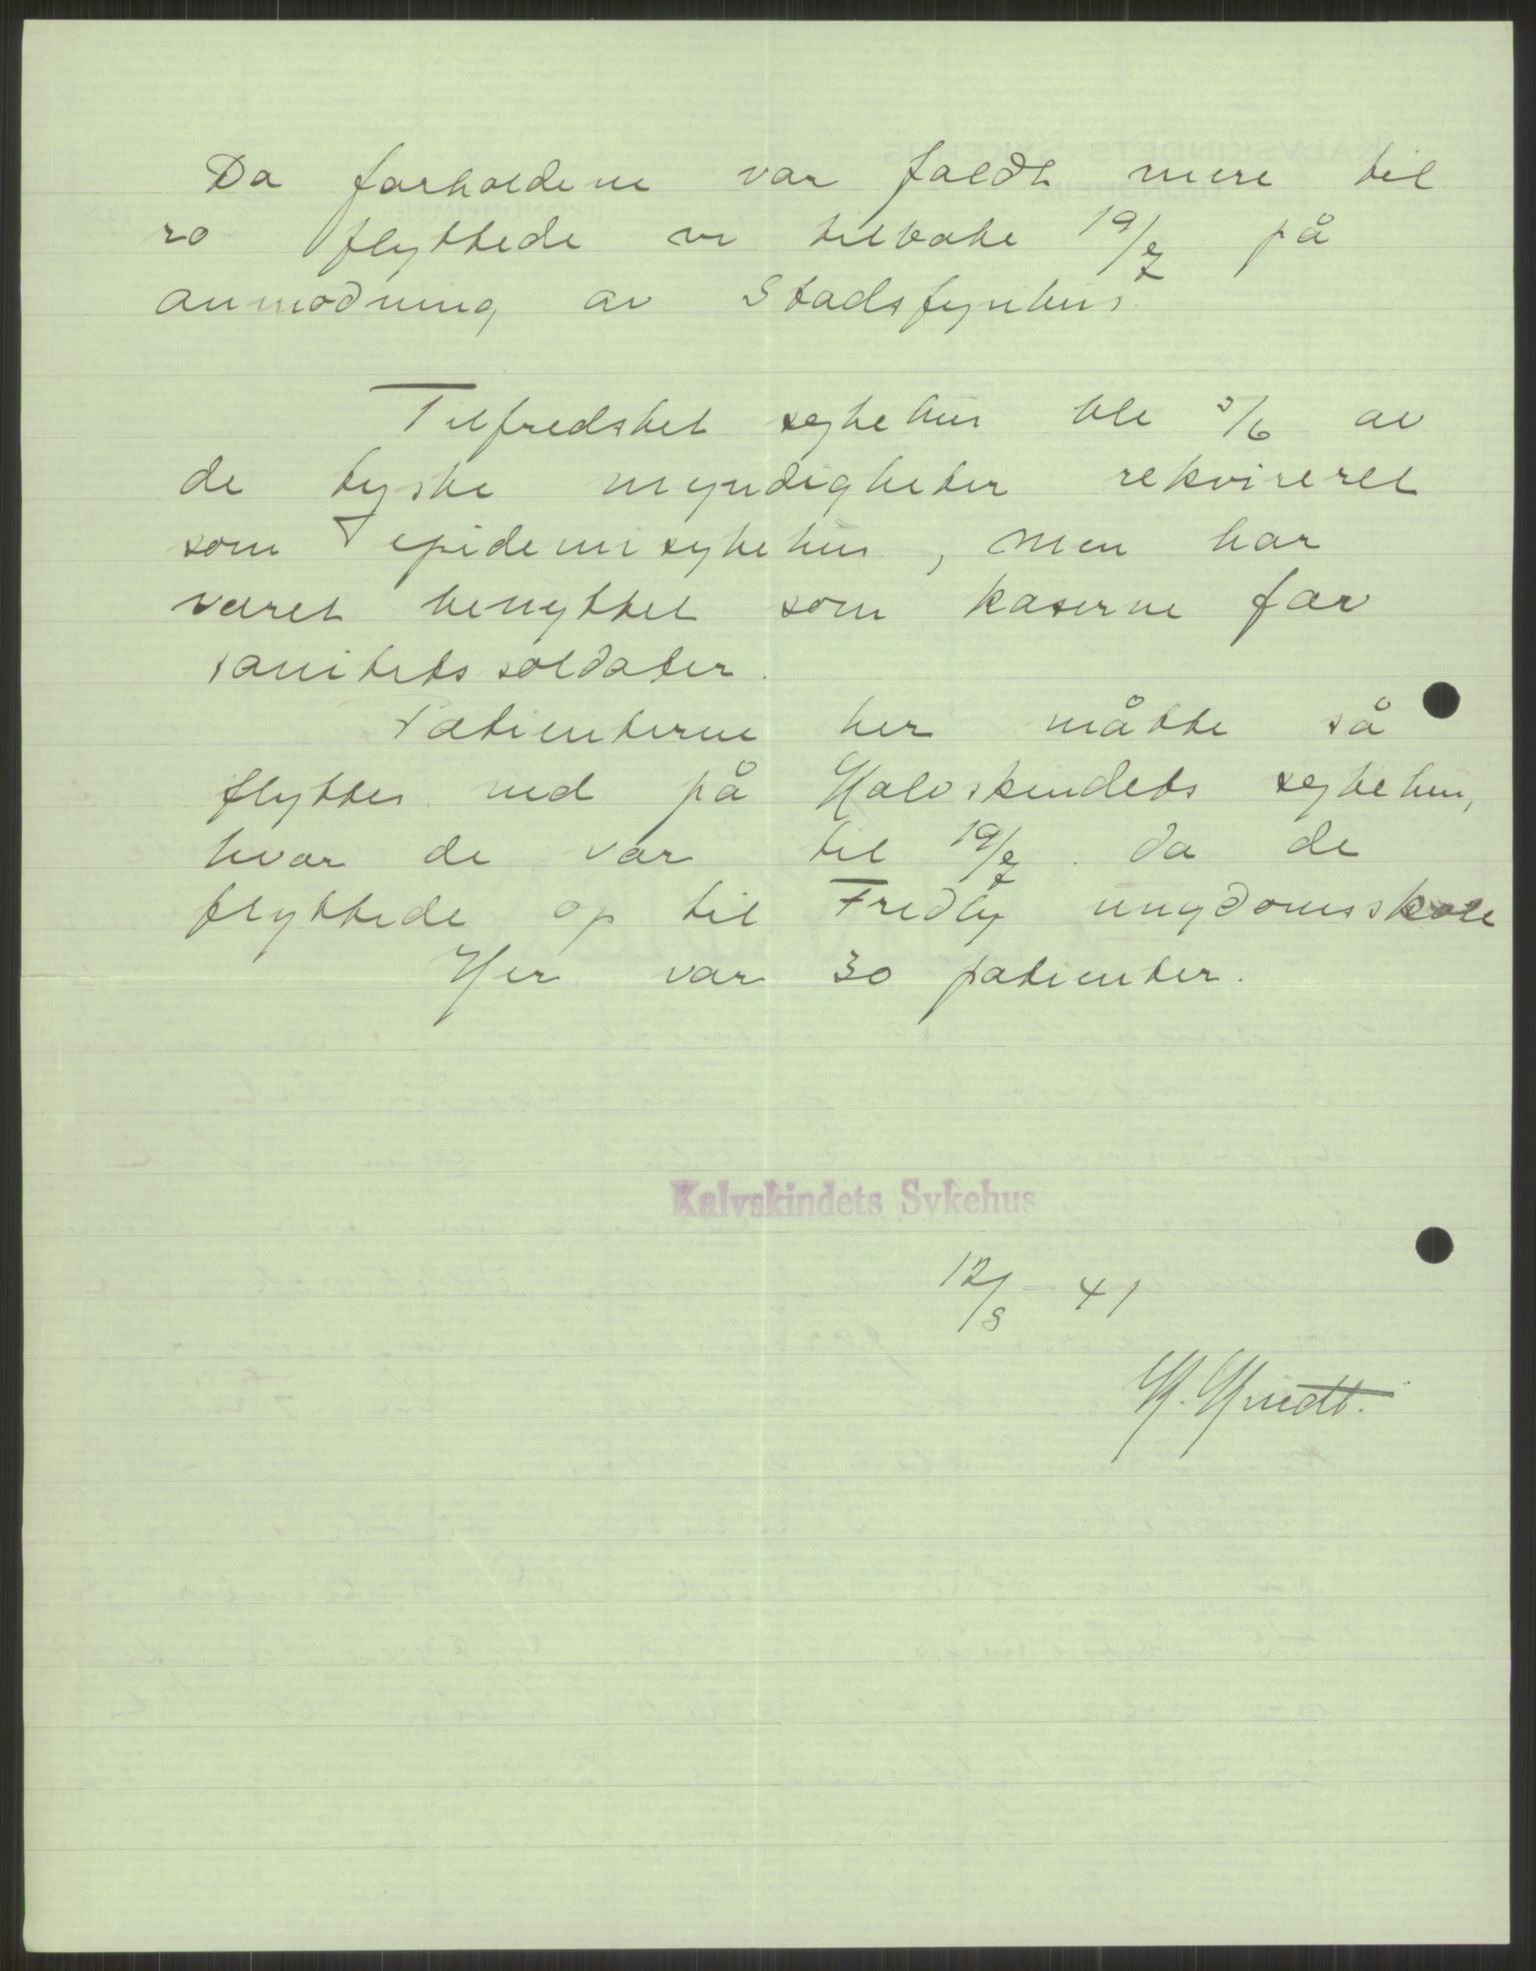 Da forholdene var faldt mere til
ro flyttede vi tilbake 19/7 på
anmodning av Stadsfysikus.
Tilfredshet sykehus ble 5/6 av
de tyske myndigheter rekvireret
som epidemisykehus, men har
været benyttet som kaserne for
sanitetssoldater.
Patienterne her måtte så
flyttes ned på Kalvskindets sykehus,
hvor de var til 19/7. da de
flyttede op til Fredly ungdomsskole
Her var 30 patienter.
Kalvskindets Sykehus
12/8 - 41